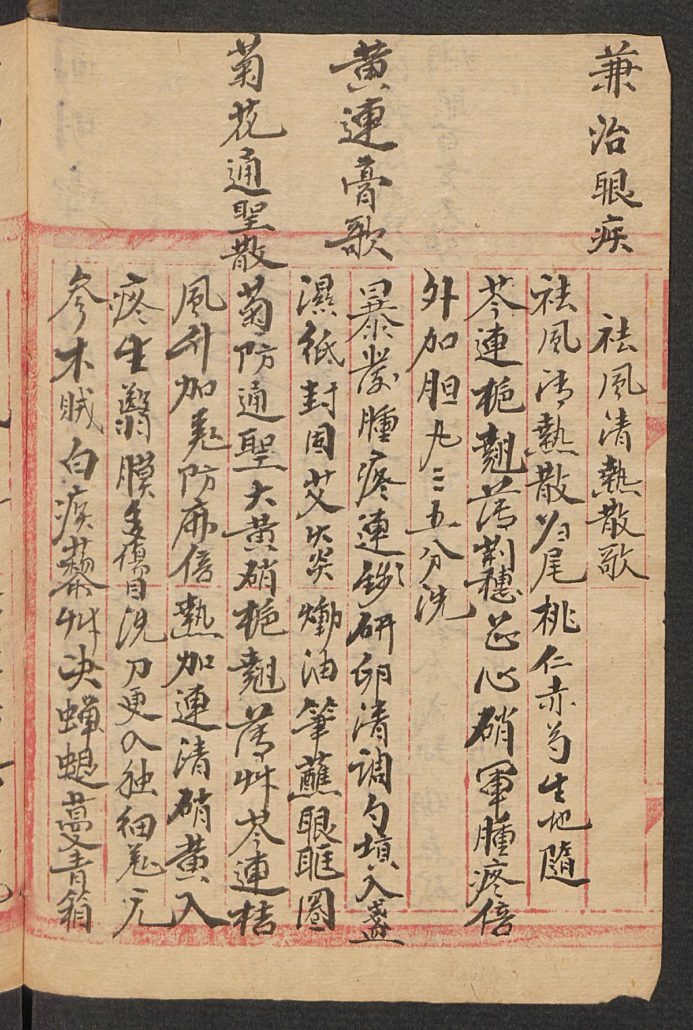 兼治眼疾
祛風清熱散歌
祛風清熱散归尾桃仁赤芍生地隨
芩連梔翹薄荆穗芯心硝軍腫疼倍
外加胆九三五分洗
黄連膏歌
暴發腫疼連錢研卵清調勻填入盞
濕紙封固艾炎燻油筆蘸眼眶圈
菊花通聖散
菊防通聖大黄硝梔翹薄艸芩連桔
風升加羗防麻倍熱加連清硝黄入
疼生翳膜多俱目洗刀更入独細羗元
參木賊白疾藜艸决蟬蜕蔓青箱